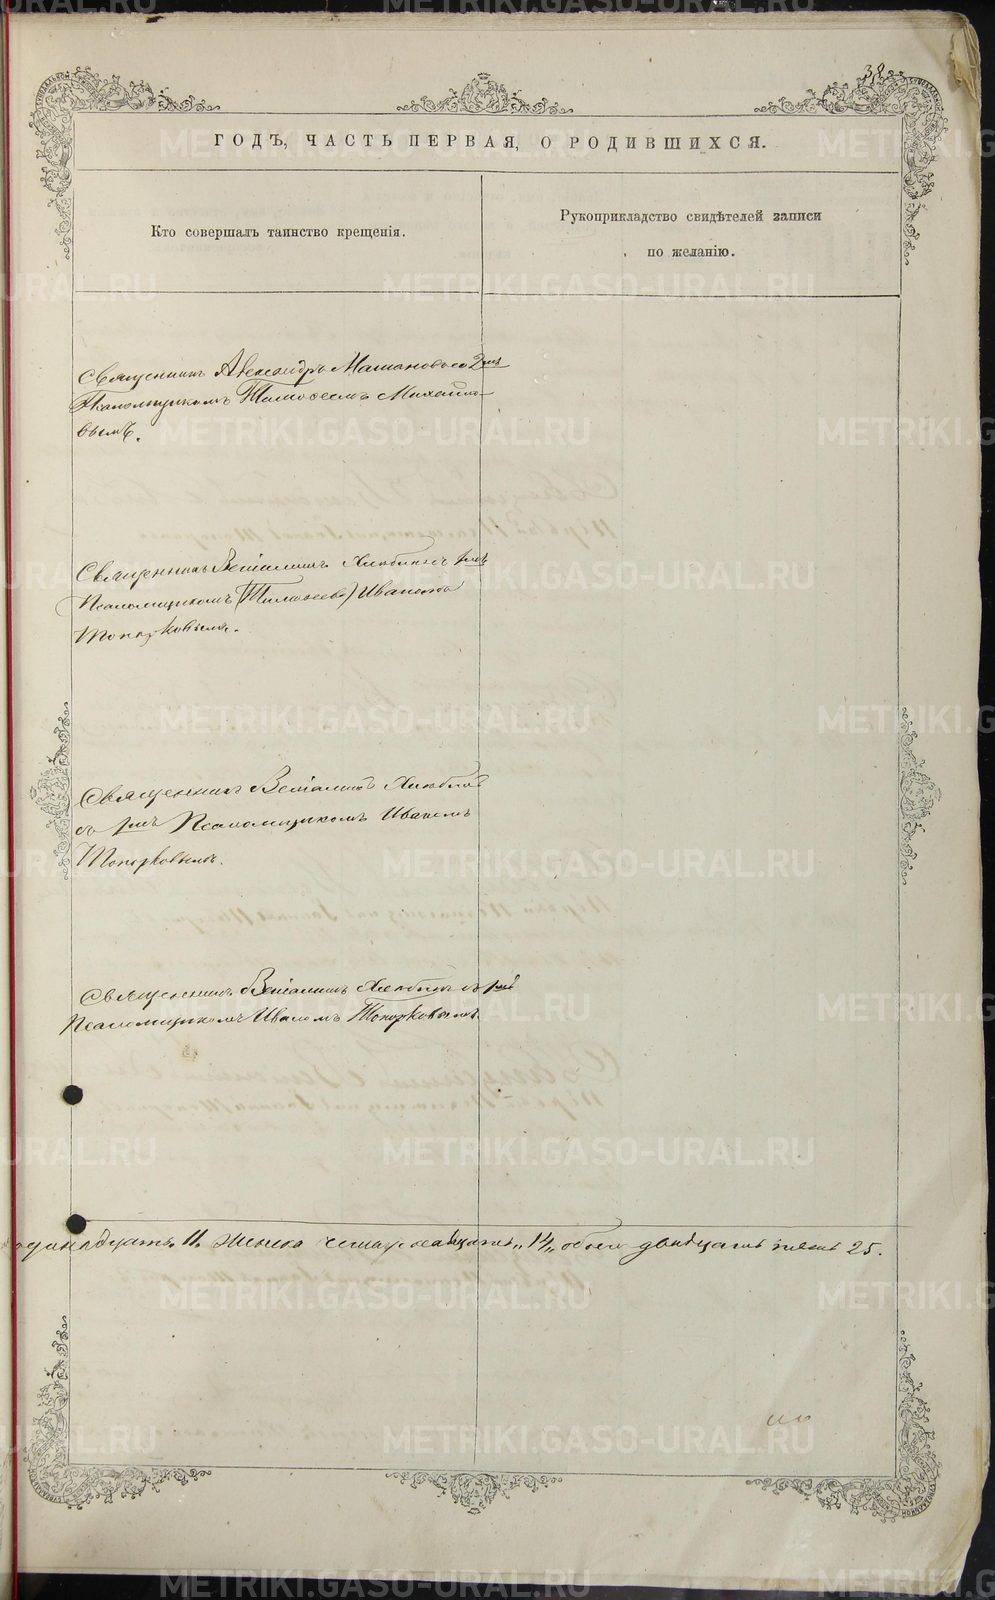 38
ГОДЪ, ЧАСТЬ ПЕРВАЯ, О РОДИВШИХСЯ.
Кто совершалъ таинство крещенія.
Рукоприкладство свидѣтелей записи
по желанію.
Священникъ Александръ 2мъ
Псаломщикомъ Тимофеемъ Михайло-
вымъ.
Священникъ Виталинъ Хлюбинъ 1мъ
Псаломщикомъ (Тимофеев) Иваномъ
Топорковымъ.
Священникъ Виталинъ Хлюбинъ
съ 1мъ Псаломщикомъ Иваномъ
Топорковымъ.
Священникъ Виталинъ Хлюбинъ съ 1мъ
Псаломщикомъ Иваномъ Топорковымъ.
одинадцать 11. Женска четырнадцать „14„ обоего двадцать пять 25.
METRIKI.GASO-URAL.RU